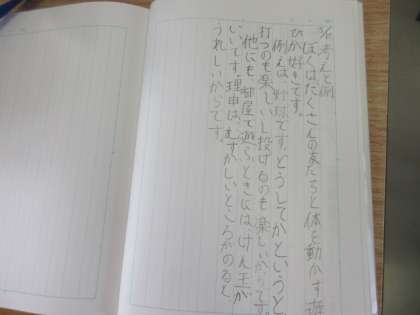 3/5考えと例
ぼくはたくさんの友だちと体を動かす遊
びが好きです。
例えば、野球です。どうしてかというと
打つのも楽しいし投げるのも楽しいからです。
他にも、部屋で遊ぶときには、けん玉が
いいです。理由は、むずかしいところがのると
うれしいからです。